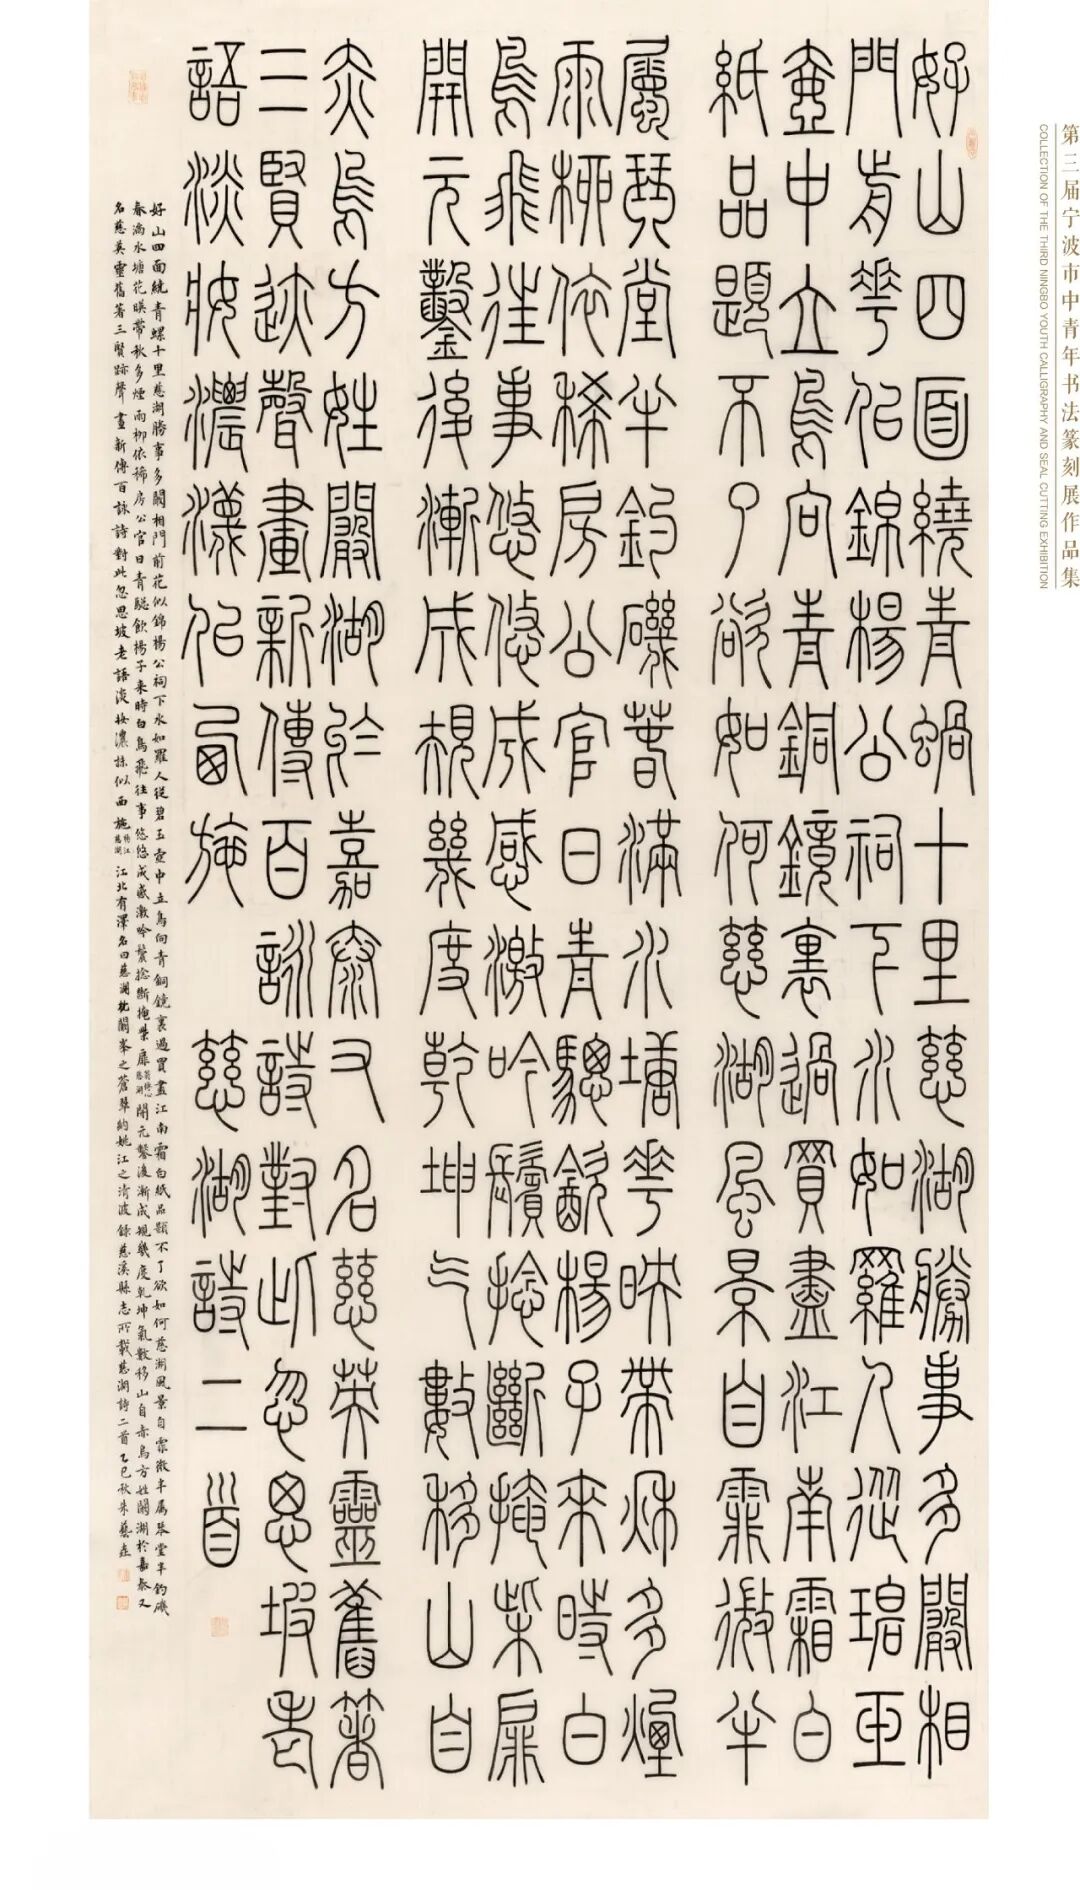 第三届宁波市中青年书法篆刻展作品集
COLLECTION OF THE THIRD NINGBO YOUTH CALLIGRAPHY AND SEAL CUTTING EXHIBITION
好山四面繞青螺十里慈湖勝事多闞相
門前花似錦楊公祠下水如羅人從碧玉
壺中立鳥向青銅鏡裏過買盡江南霜白
紙品題不了欲如何慈湖風景自霏微半
屬琴堂半釣磯春滿水塘花暎帶秋多煙
雨柳依稀房公官日青驄飲楊子來時白
鳥飛往事悠悠成感激吟鬚捻斷掩柴扉
開元鑿後漸成規幾度乾坤氣數移山自
赤烏方姓闞湖於嘉泰又名慈英靈舊著
三賢跡聲畫新傳百詠詩對此忽思坡老
語淡妝濃抹似西施 慈湖詩二首
好山四面繞青螺十里慈湖勝事多闞相門前花似錦楊公祠下水如羅人從碧玉壺中立鳥向青銅鏡裏過買盡江南霜白紙品題不了欲如何慈湖風景自霏微半屬琴堂半釣磯
春滿水塘花暎帶秋多煙雨柳依稀房公官日青驄飲楊子來時白鳥飛往事悠悠成感激吟鬚捻斷掩柴扉 慈湖 開元鑿後漸成規幾度乾坤氣數移山自赤烏方姓闞湖於嘉泰又
名慈英靈舊著三賢跡聲畫新傳百詠詩對此忽思坡老語淡妝濃抹似西施 慈湖 江北有澤名曰慈湖枕闞峯之蒼翠納姚江之清波錄慈溪縣志所載慈湖詩二首乙巳秋朱藝垚